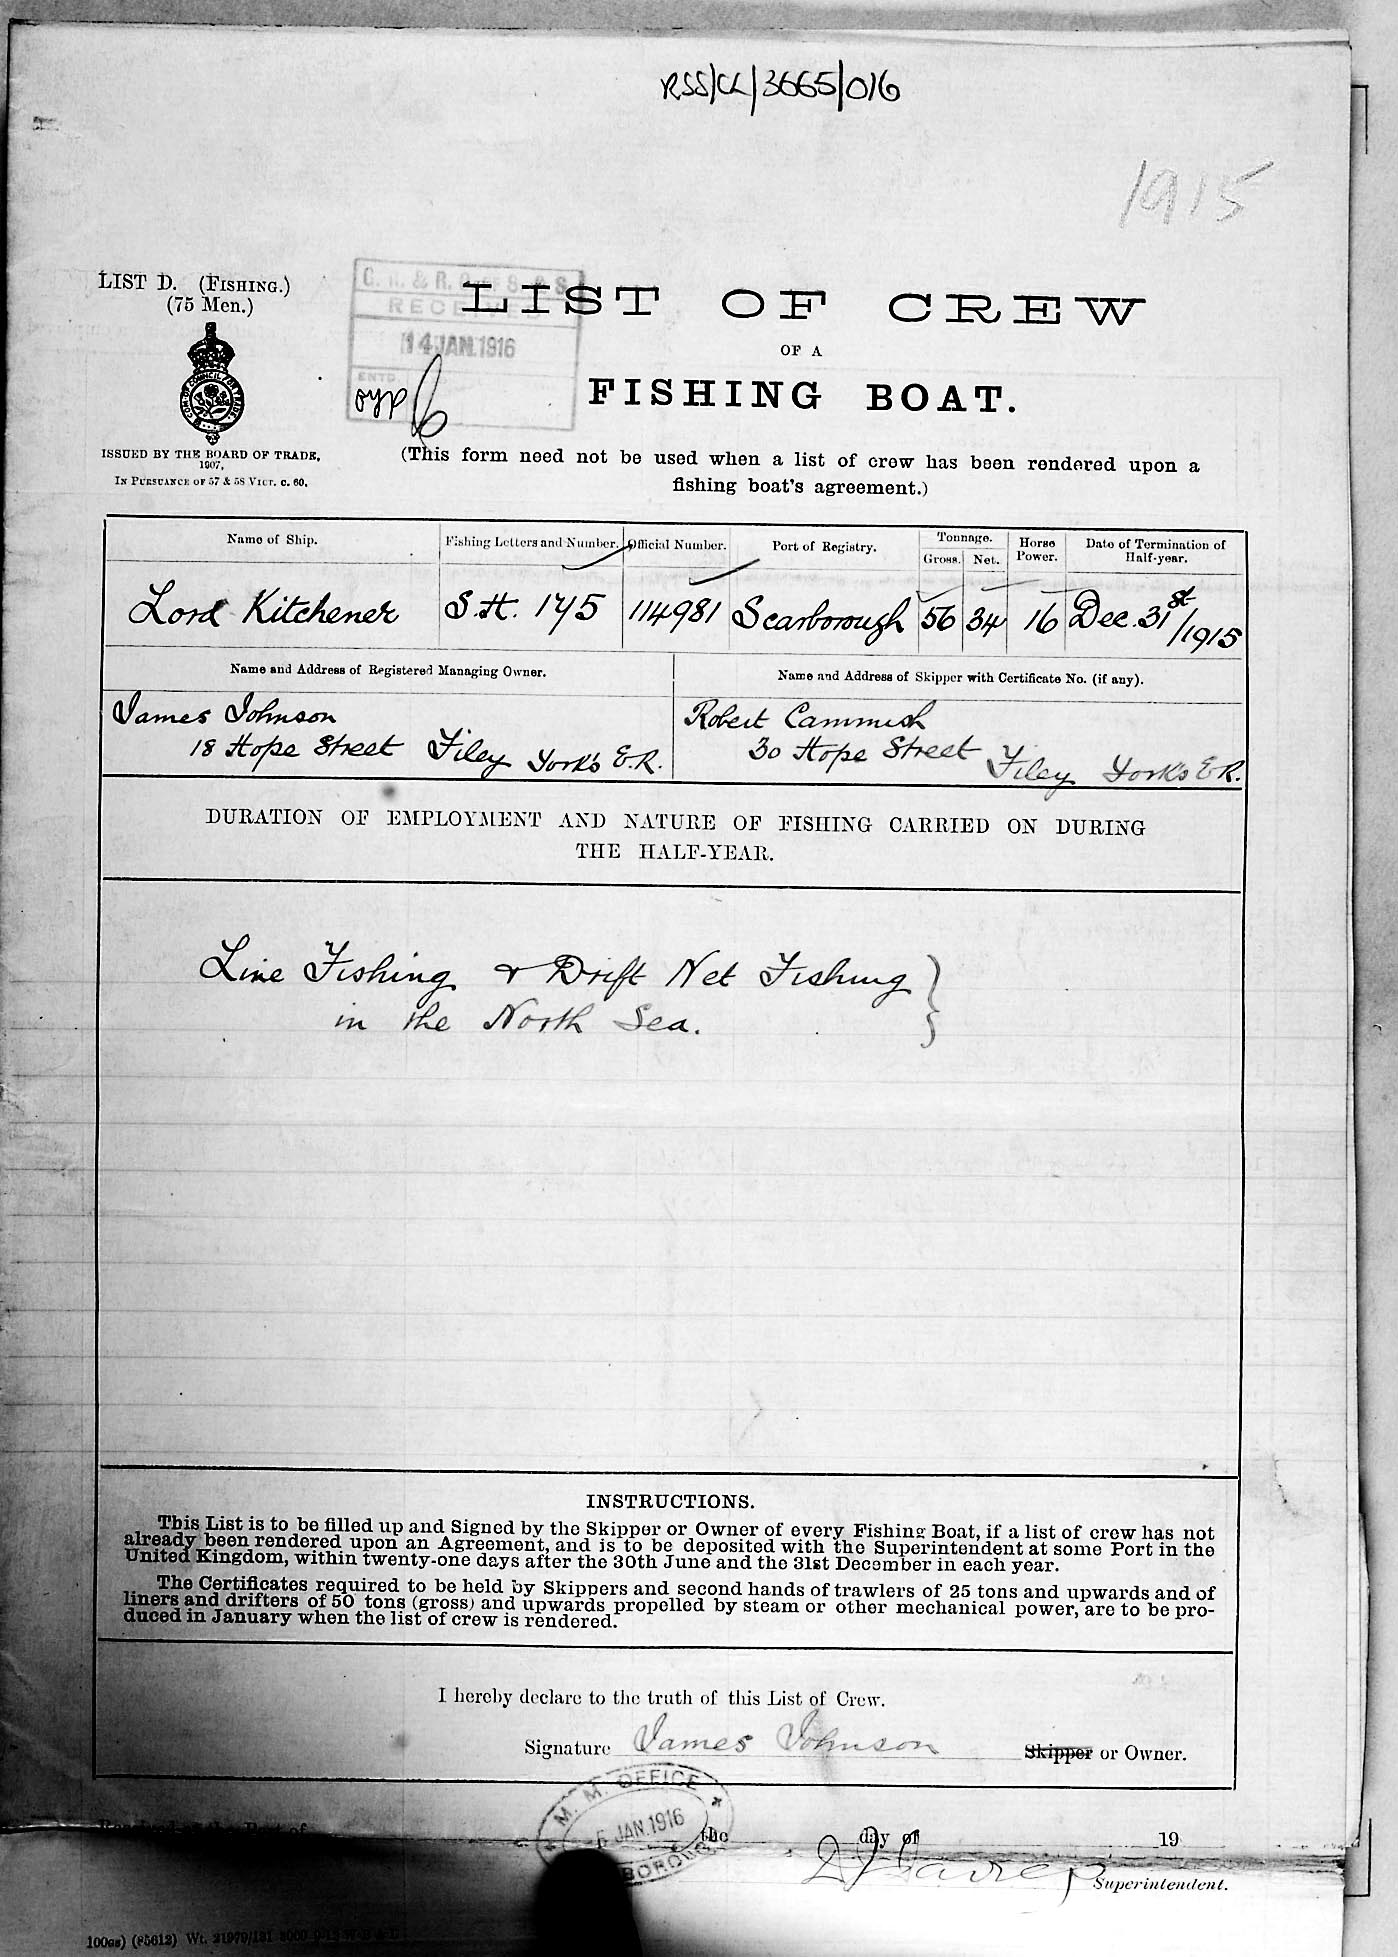 RSS/CL/3665/016
1915
LIST D. (FISHING.)
(75 Men.)
RECEIVED
14 JAN. 1916
ENTD
LIST OF CREW
OF A
FISHING BOAT.
ISSUED BY THE BOARD OF TRADE,
1907,
IN PURSUANCE OF 57 & 58 VICT. C. 60.
(This form need not be used when a list of crew has been rendered upon a
fishing boat's agreement.)
Name of Ship. Fishing Letters and Number. Official Number. Port of Registry. Tonnage. Gross. Net. Horse Power. Date of Termination of Half-year.
Lord Kitchener S.H. 175 114981 Scarborough 56 34 16 Dec. 31st/1915
Name and Address of Registered Managing Owner. Name and Address of Skipper with Certificate No. (if any).
James Johnson Robert Cammish
18 Hope Street Filey Yorks E.R. 30 Hope Street Filey Yorks E.R.
DURATION OF EMPLOYMENT AND NATURE OF FISHING CARRIED ON DURING
THE HALF-YEAR.
Line Fishing & Drift Net Fishing }
in the North Sea.
INSTRUCTIONS.
This List is to be filled up and Signed by the Skipper or Owner of every Fishing Boat, if a list of crew has not
already been rendered upon an Agreement, and is to be deposited with the Superintendent at some Port in the
United Kingdom, within twenty-one days after the 30th June and the 31st December in each year.
The Certificates required to be held by Skippers and second hands of trawlers of 25 tons and upwards and of
liners and drifters of 50 tons (gross) and upwards propelled by steam or other mechanical power, are to be pro-
duced in January when the list of crew is rendered.
I hereby declare to the truth of this List of Crew.
Signature James Johnson Skipper or Owner.
M. M. OFFICE
JAN. 1916
the day of 19
Superintendent.